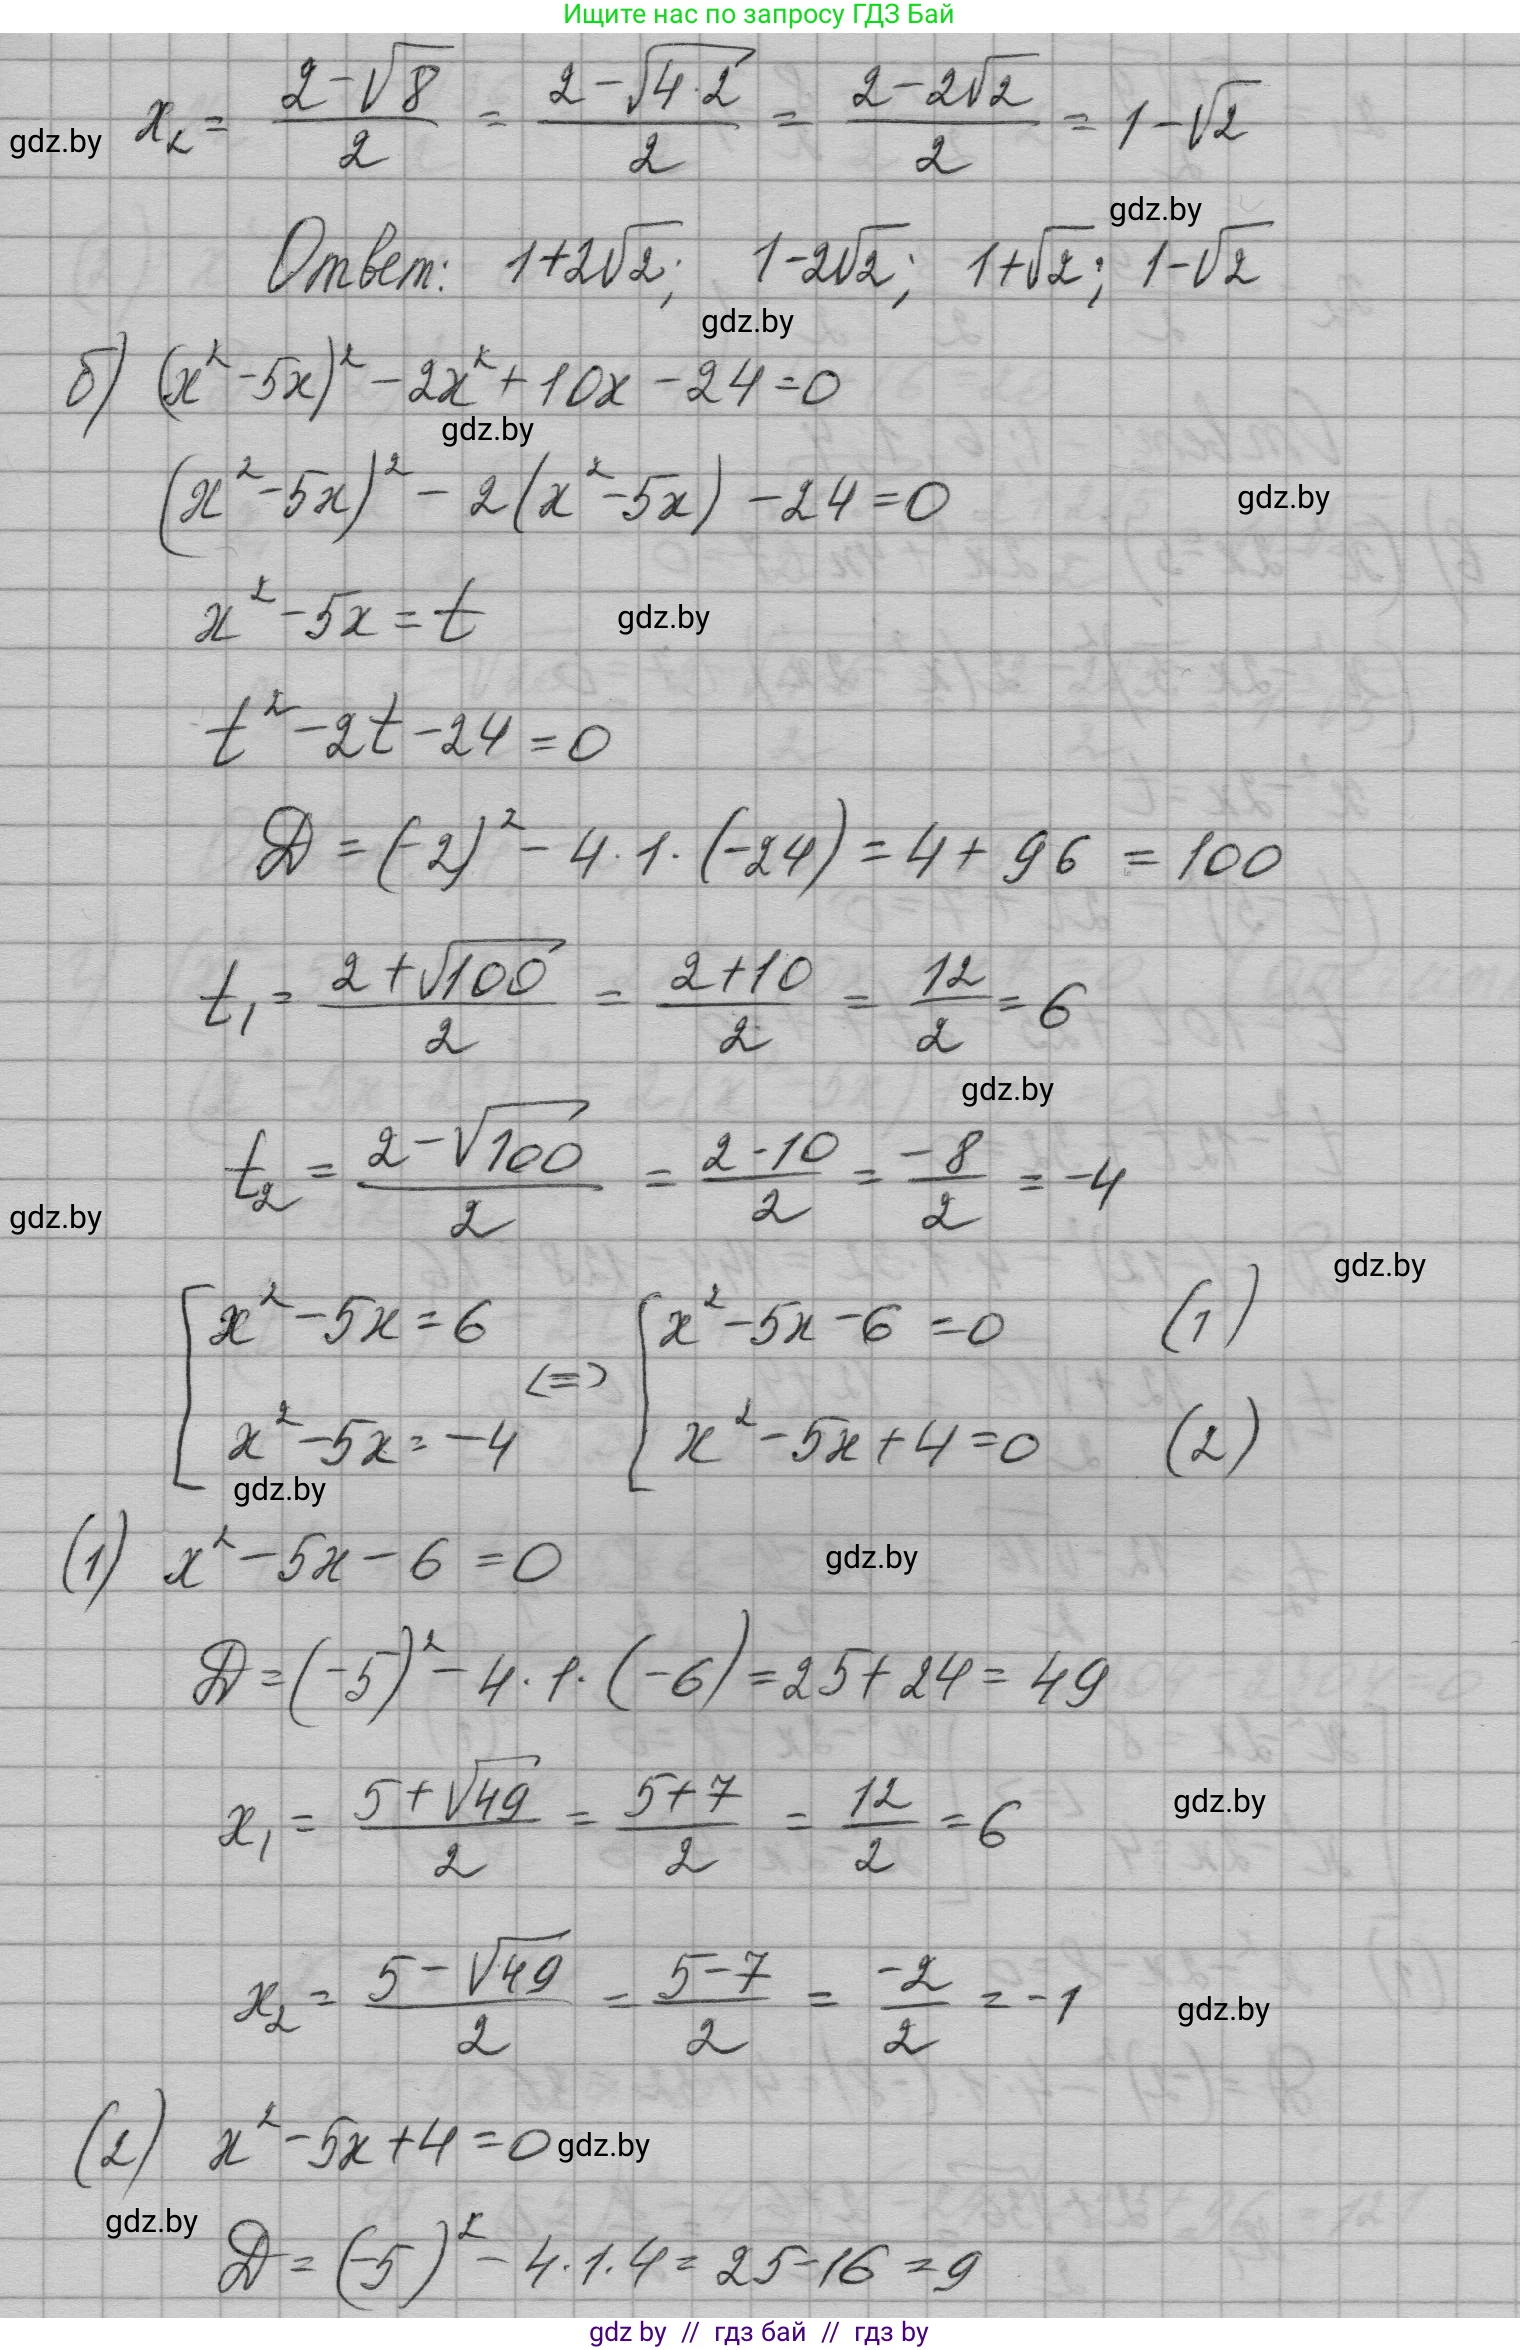 Ищите нас по запросу ГДЗ Бай
x₂ = (2-√8)/2 = (2-√(4·2))/2 = (2-2√2)/2 = 1-√2
gdz.by
gdz.by
Ответ: 1+2√2; 1-2√2; 1+√2; 1-√2
gdz.by
б) (x²-5x)² - 2x² + 10x - 24 = 0
gdz.by
(x²-5x)² - 2(x²-5x) - 24 = 0
gdz.by
x² - 5x = t
gdz.by
t² - 2t - 24 = 0
D = (-2)² - 4·1·(-24) = 4 + 96 = 100
t₁ = (2+√100)/2 = (2+10)/2 = 12/2 = 6
gdz.by
t₂ = (2-√100)/2 = (2-10)/2 = -8/2 = -4
gdz.by
gdz.by
[ x² - 5x = 6 <=> [ x² - 5x - 6 = 0 (1)
x² - 5x = -4 x² - 5x + 4 = 0 (2)
gdz.by
(1) x² - 5x - 6 = 0
gdz.by
D = (-5)² - 4·1·(-6) = 25 + 24 = 49
x₁ = (5+√49)/2 = (5+7)/2 = 12/2 = 6
gdz.by
x₂ = (5-√49)/2 = (5-7)/2 = -2/2 = -1
gdz.by
(2) x² - 5x + 4 = 0
gdz.by
gdz.by
D = (-5)² - 4·1·4 = 25 - 16 = 9
gdz by // гдз бай // гдз by